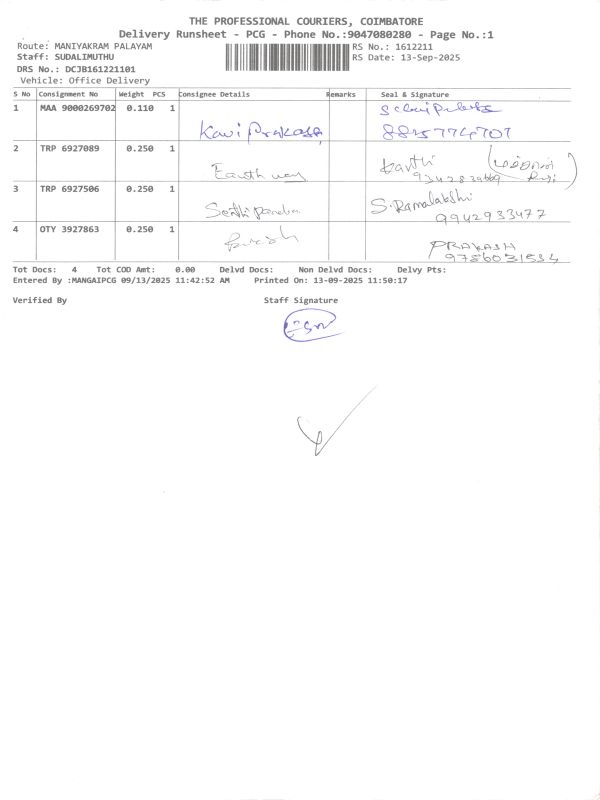 THE PROFESSIONAL COURIERS, COIMBATORE
Delivery Runsheet - PCG - Phone No.:9047080280 - Page No.:1
Route: MANIYAKRAM PALAYAM RS No.: 1612211
Staff: SUDALIMUTHU RS Date: 13-Sep-2025
DRS No.: DCJB161221101
Vehicle: Office Delivery
S No Consignment No Weight PCS Consignee Details Remarks Seal & Signature
1 MAA 9000269702 0.110 1 Kavi Prakash 8815774707
2 TRP 6927089 0.250 1 Earth way Karthi
3 TRP 6927506 0.250 1 S. Ramalakshi
9942933477
4 OTY 3927863 0.250 1 PRAKASH
9786031534
Tot Docs: 4 Tot COD Amt: 0.00 Delvd Docs: Non Delvd Docs: Delvy Pts:
Entered By :MANGAIPCG 09/13/2025 11:42:52 AM Printed On: 13-09-2025 11:50:17
Verified By Staff Signature